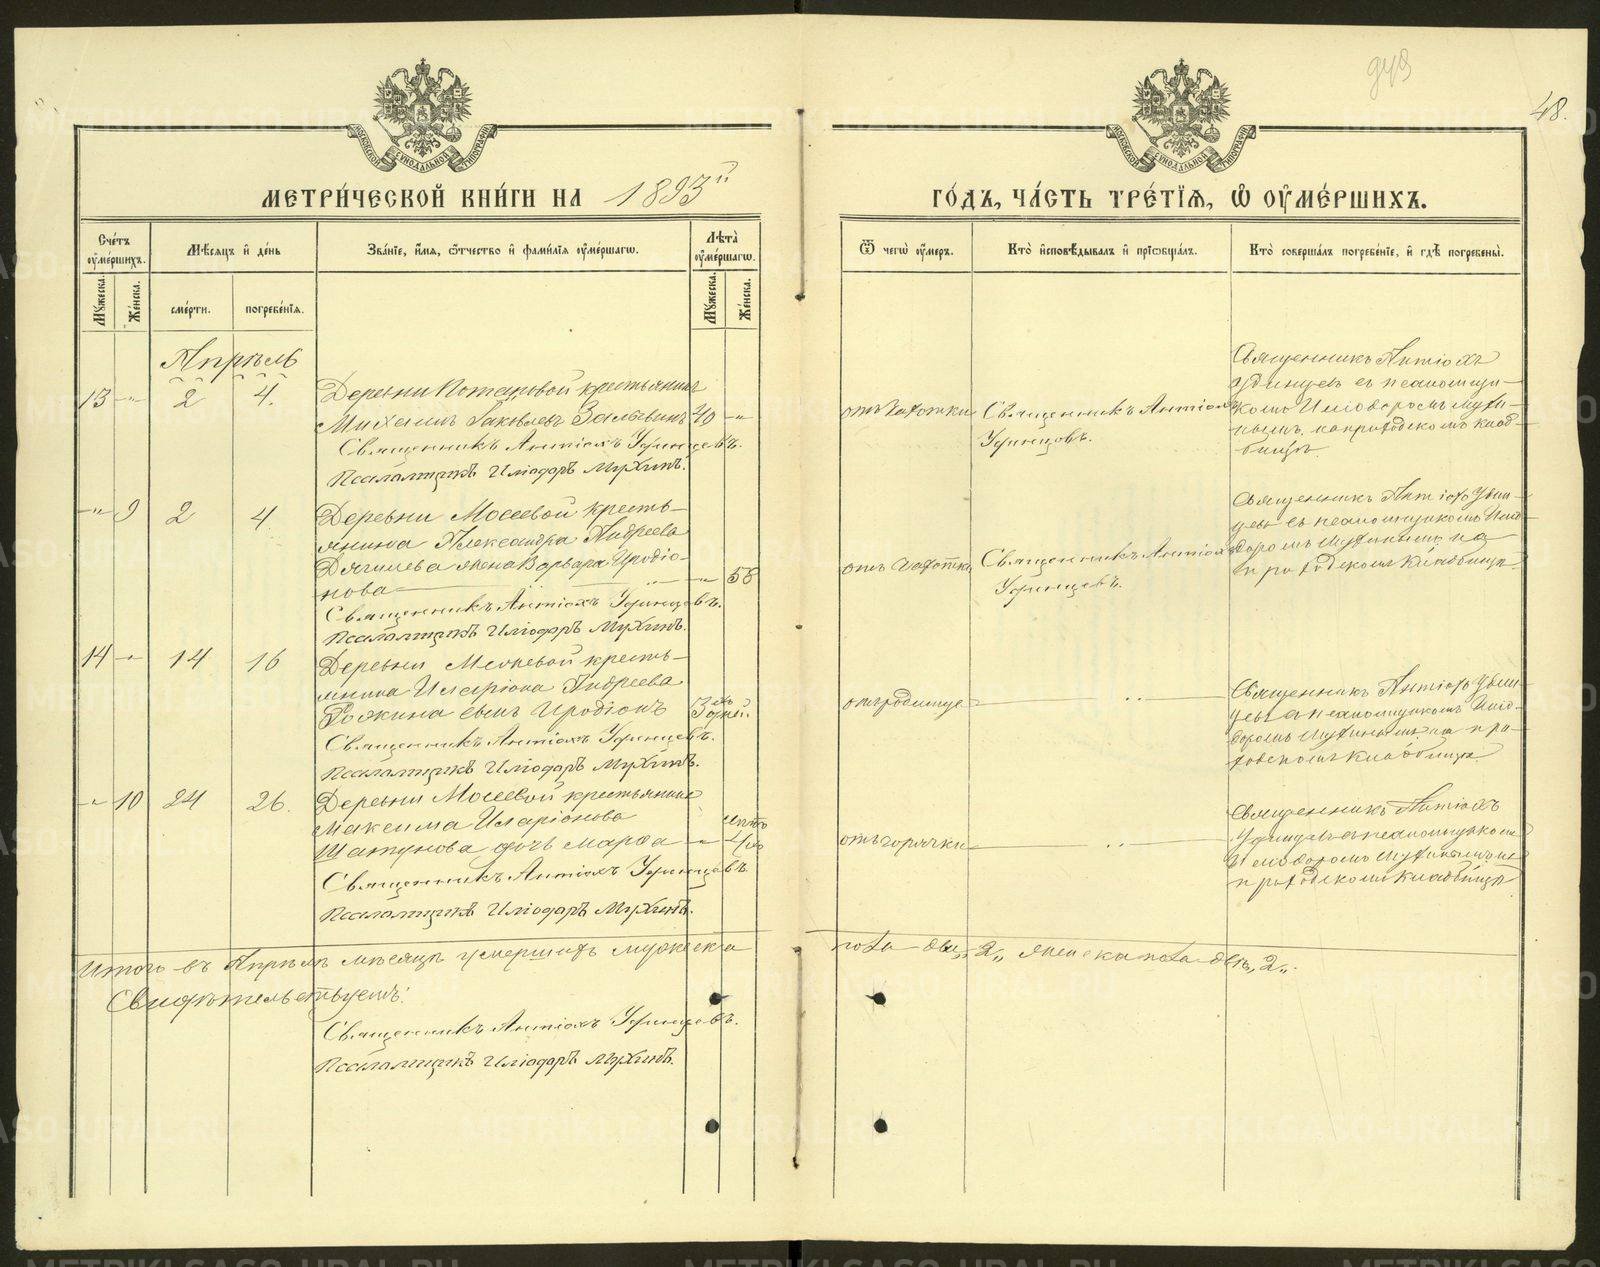 48.
МЕТРИ́ЧЕСКОЙ КНИ́ГИ НА 1893й
ГО́ДЪ, ЧА́СТЬ ТРЕ́ТІѦ, Ѽ ОУ҆МЕ́РШИХЪ.
Сче́тъ оу҆ме́ршихъ.
Мѣ́сяцъ и҆ де́нь
Зва́нїе, и҆́мѧ, ѻ҆́тчество и҆ фами́лїѧ оу҆ме́ршагѡ.
Лѣ́та̀ оу҆ме́ршагѡ.
Ѿ чегѡ̀ оу҆́меръ.
Кто̀ и҆сповѣ́дывалъ и҆ прїѡбща́лъ.
Кто̀ соверша́лъ погребе́нїе, и҆ гдѣ̀ погребены̀.
Му́жеска.
Же́нска.
сме́рти.
погребе́нїѧ.
Му́жеска.
Же́нска.
Апрѣль
13 -"- 2 4.
Деревни Потаповой крестьянинъ
Михаилъ Іаковлевъ 49 -"-
Священникъ Антіохъ Удинцевъ.
Псаломщикъ Иліодоръ Мухинъ.
отъ чахотки
Священникъ Антіохъ
Удинцовъ.
Священникъ Антіохъ
Удинцевъ съ псаломщи-
комъ Иліодоромъ Мухи-
нымъ, на приходскомъ клад-
бищѣ.
-"- 9 2 4.
Деревни Мосеевой кресть-
янина Александра Андреева
Дягилева жена Варвара Иродіо-
нова -"- 58
Священникъ Антіохъ Удинцевъ.
Псаломщикъ Иліодоръ Мухинъ.
отъ чахотки
Священникъ Антіохъ
Удинцевъ.
Священникъ Антіохъ Удин-
цевъ съ псаломщикомъ Иліо-
доромъ Мухинымъ на
приходскомъ кладбищѣ
14 -"- 14 16
Деревни кресть-
янина Иларіона Андреева
сынъ Иродіонъ 3хъ дней
Священникъ Антіохъ Удинцевъ.
Псаломщикъ Иліодоръ Мухинъ.
отъ родимца
Священникъ Антіохъ Удин-
цевъ съ псаломщикомъ Иліо-
доромъ Мухинымъ на при-
ходскомъ кладбищѣ
-"- 10 24 26.
Деревни Мосеевой крестьянина
Максима Иларіонова
Шатунова дочь Марѳа -"-
Священникъ Антіохъ Удинцевъ
Псаломщикъ Иліодоръ Мухинъ.
отъ горячки
Священникъ Антіохъ
Удинцевъ съ псаломщикомъ
Иліодоромъ Мухинымъ на
приходскомъ кладбищѣ
Итого въ Апрѣлѣ мѣсяцѣ умершихъ мужеска пола два „2„ женска пола двѣ „2„.
Свидѣтельствуемъ:
Священникъ Антіохъ Удинцевъ.
Псаломщикъ Иліодоръ Мухинъ.
METRIKI.GASO-URAL.RU